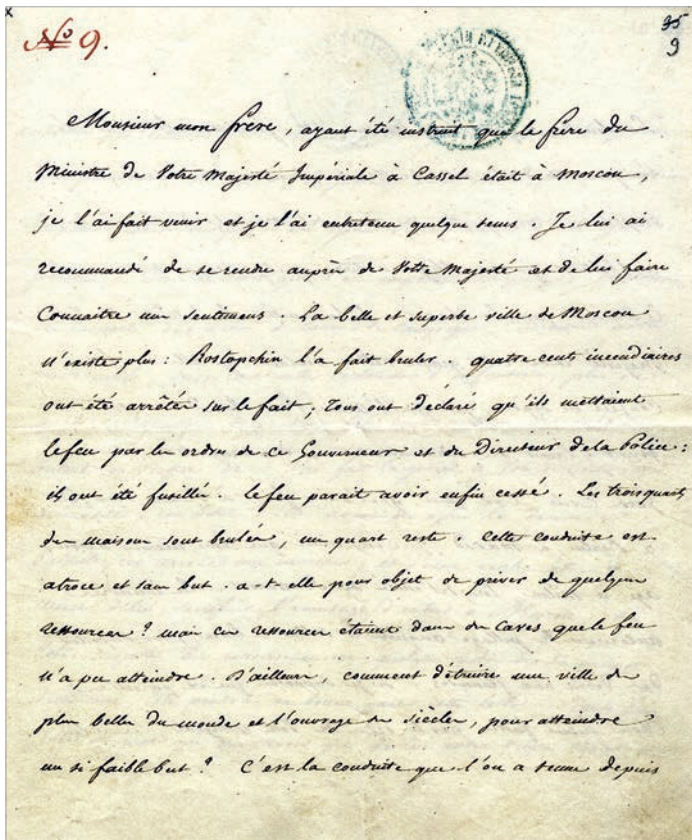 x
No 9.
35
9
Monsieur mon frere, ayant été instruit que le frere du
Ministre de Votre Majesté Impériale à Cassel était à Moscou,
je l'ai fait venir et je l'ai entretenu quelque tems. Je lui ai
recommandé de se rendre auprès de Votre Majesté et de lui faire
connaitre mes sentimens. La belle et superbe ville de Moscou
n'existe plus: Rostopchin l'a fait bruler. quatre cents incendiaires
ont été arrêtés sur le fait; tous ont déclaré qu'ils mettaient
le feu par les ordres de ce Gouverneur et du Directeur de la Police:
ils ont été fusillés. le feu parait avoir enfin cessé. Les trois quarts
des maisons sont brulées, un quart reste. Cette conduite est
atroce et sans but. a-t-elle pour objet de priver de quelques
ressources? mais ces ressources étaient dans des caves que le feu
n'a pu atteindre. D'ailleurs, comment détruire une ville des
plus belles du monde et l'ouvrage des siècles, pour atteindre
un si faible but? C'est la conduite que l'on a tenue depuis